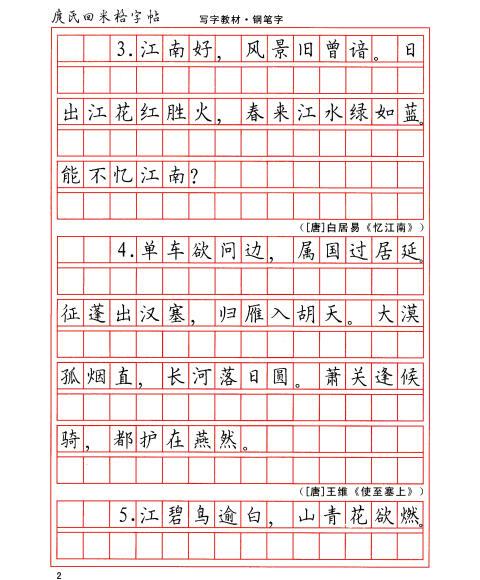 庹氏回米格字帖
写字教材·钢笔字
3.江南好，风景旧曾谙。日
出江花红胜火，春来江水绿如蓝。
能不忆江南？
（[唐]白居易《忆江南》）
4.单车欲问边，属国过居延。
征蓬出汉塞，归雁入胡天。大漠
孤烟直，长河落日圆。萧关逢候
骑，都护在燕然。
（[唐]王维《使至塞上》）
5.江碧鸟逾白，山青花欲燃。
2